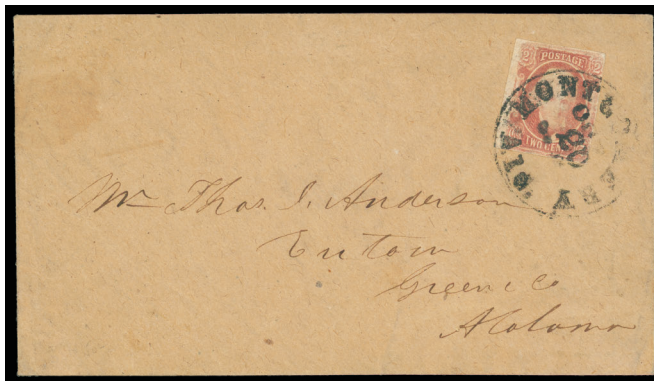 2 POSTAGE 2
TWO CENTS
MONTGOMERY ALA
20
Mr Thos. J. Anderson
Eutaw
Greene Co
Alabama